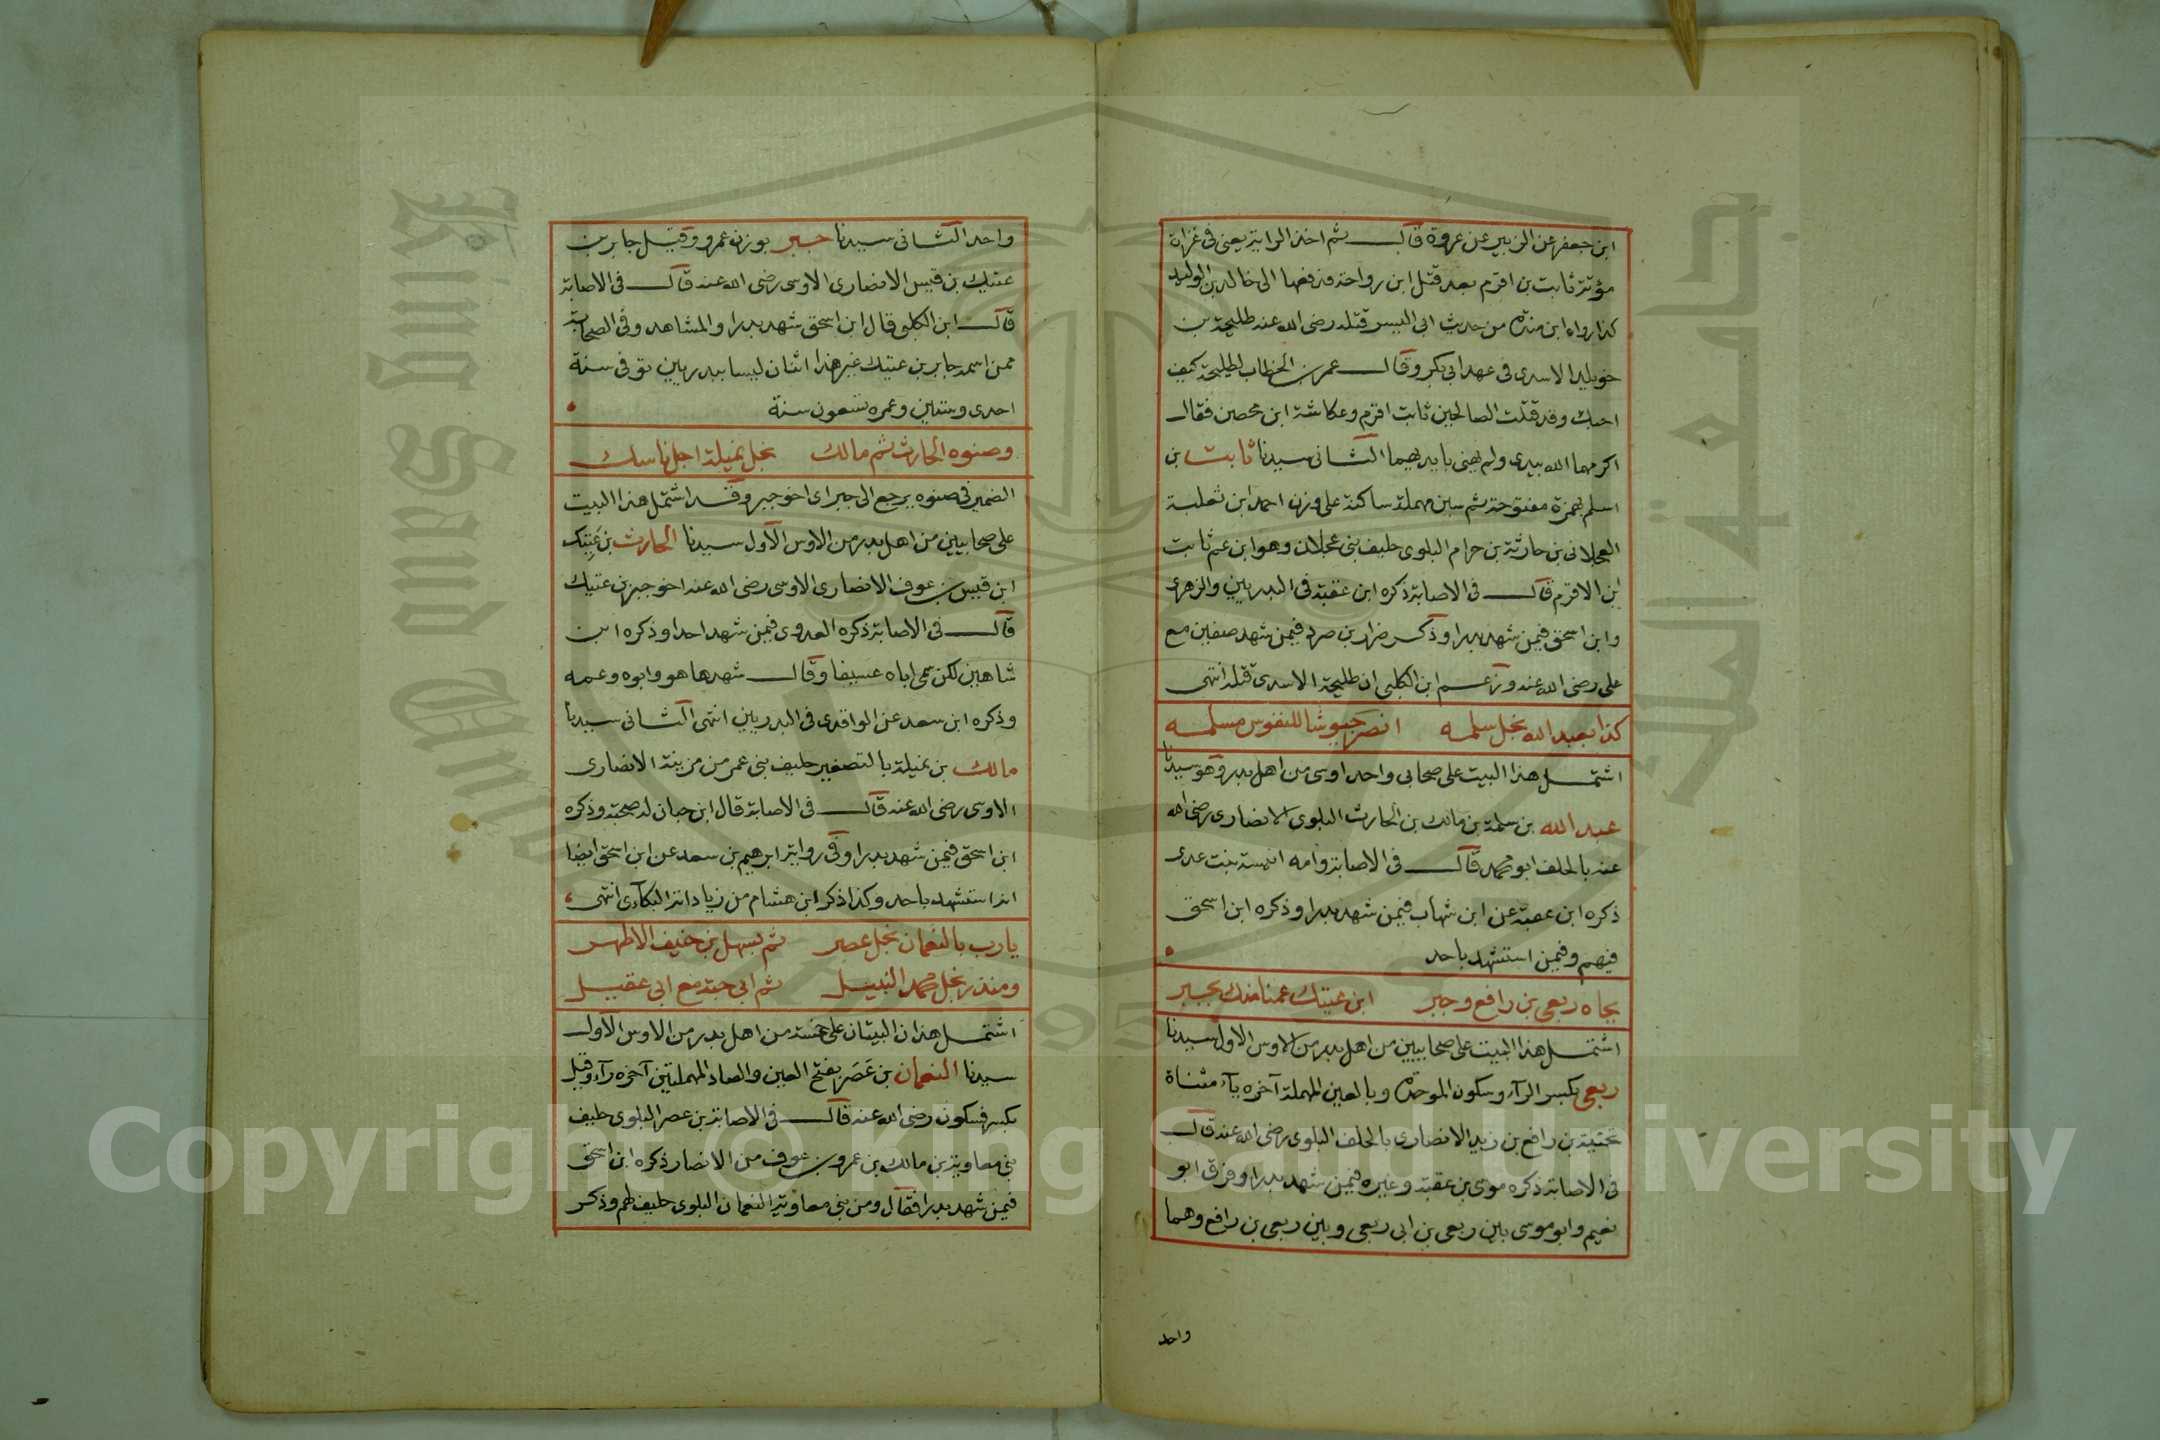 ابن جعفر عن الزبير عن عروة قال ثم اخذ الراية يعنى فى غزاة
مؤتة ثابت بن اقرم بعد قتل ابن رواحة فدفعها الى خالد بن الوليد
كذا رواه ابن مندة من حديث ابى اليسر قتله رضى الله عنه طليحة بن
خويلد الاسدى فى عهد ابى بكر وقال عمر بن الخطاب لطليحة كيف
احبك وقد قتلت الصالحين ثابت اقرم وعكاشة ابن محصن فقال
اكرمهما الله بيدى ولم يهنى بايديهما الثانى سيدنا ثابت بن
اسلم بهمزة مفتوحة ثم سين مهملة ساكنة على وزن احمد ابن ثعلبة
العجلانى بن حارثة بن حرام البلوى حليف بنى عجلان وهو ابن عم ثابت
بن الاقرم قال فى الاصابة ذكره ابن عقبة فى البدريين والزهرى
وابن اسحق فيمن شهد بدرا وذكر ضرار بن صرد فيمن شهد صفين مع
على رضى الله عنه وزعم ابن الكلبى ان طليحة الاسدى قتله انتهى
كذا بعبد الله نجل سلمه انصر جيوشا للنفوس مسلمه
اشتمل هذا البيت على صحابى واحد اوسى من اهل بدر وهو سيدنا
عبد الله بن سلمة بن مالك بن الحارث البلوى الانصارى رضى الله
عنه بالحلف ابو محمد قال فى الاصابة وامه انيسة بنت عدى
ذكره ابن عقبة عن ابن شهاب فيمن شهد بدرا وذكره ابن اسحق
فيهم وفيمن استشهد باحد
بجاه ربعى بن رافع وجبر ابن عتيك عمنا منك بجبر
اشتمل هذا البيت على صحابيين من اهل بدر من الاوس الاول سيدنا
ربعى بكسر الرآء وسكون الموحدة وبالعين المهملة آخره يآء مثناة
تحتية بن رافع بن زيد الانصارى بالحلف البلوى رضى الله عنه قال
فى الاصابة ذكره موسى بن عقبة وغيره فيمن شهد بدرا وفرق ابو
نعيم وابو موسى بين ربعى بن ابى ربعى وبين ربعى بن رافع وهما
واحد
واحد الثانى سيدنا جبر بوزن عمرو وقيل جابر بن
عتيك بن قيس الانصارى الاوسى رضى الله عنه قال فى الاصابة
قال ابن الكلبى وقال ابن اسحق شهد بدرا والمشاهد وفى الصحابة
ممن اسمه جابر بن عتيك غير هذا اثنان ليسا ببدريين توفى سنة
احدى وستين وعمره تسعون سنة
وصنوه الحارث ثم مالك نجل نميلة اجل ناسك
الضمير فى صنوه يرجع الى جبر اى اخو جبر وقد اشتمل هذا البيت
على صحابيين من اهل بدر من الاوس الاول سيدنا الحارث بن عتيك
ابن قيس بن عوف الانصارى الاوسى رضى الله عنه اخو جبر بن عتيك
قال فى الاصابة ذكره العدوى فيمن شهد احدا وذكره ابن
شاهين لكن سمى اباه عسيفا وقال شهدها هو وابوه وعمه
وذكره ابن سعد عن الواقدى فى البدريين انتهى الثانى سيدنا
مالك بن نميلة بالتصغير حليف بنى عمر من مزينة الانصارى
الاوسى رضى الله عنه قال فى الاصابة قال ابن حبان له صحبة وذكره
ابن اسحق فيمن شهد بدرا وفى رواية ابرهيم بن سعد عن ابن اسحق ايضا
انه استشهد باحد وكذا ذكر ابن هشام من زياداته البكآءى انتهى
يارب بالنعمان نجل عصر ثم بسهل بن حنيف الاطهر
ومنذر نجل محمد النبيل ثم ابى حبة مع ابى عقيل
اشتمل هذان البيتان على خمسة من اهل بدر من الاوس الاول
سيدنا النعمان بن عصر بفتح العين والصاد المهملتين آخره رآء وقيل
بكسر فسكون رضى الله عنه قال فى الاصابة بن عصر البلوى حليف
بنى معاوية بن مالك بن عمرو بن عوف من الانصار ذكره ابن اسحق
فيمن شهد بدرا فقال ومن بنى معاوية النعمان البلوى حليف لهم وذكر
Copyright © King Saud University
King Saud University
1957